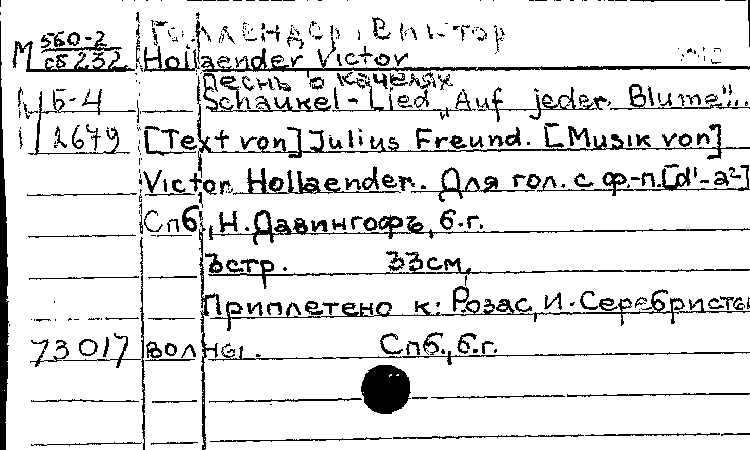 М 560-2 Голлендер, Виктор
сб 232 Hollaender Victor
Песнь о качелях
Б-4 Schaukel-Lied „Auf jeder Blume"...
2679 [Text von] Julius Freund. [Musik von]
Victor Hollaender. Для гол. с ф.-п. [d¹-a²]
Спб., Н. Давингофъ, б.г.
3стр. 33см.
Приплетено к: Розас, И. Серебристые
73017 волны. Спб., б.г.